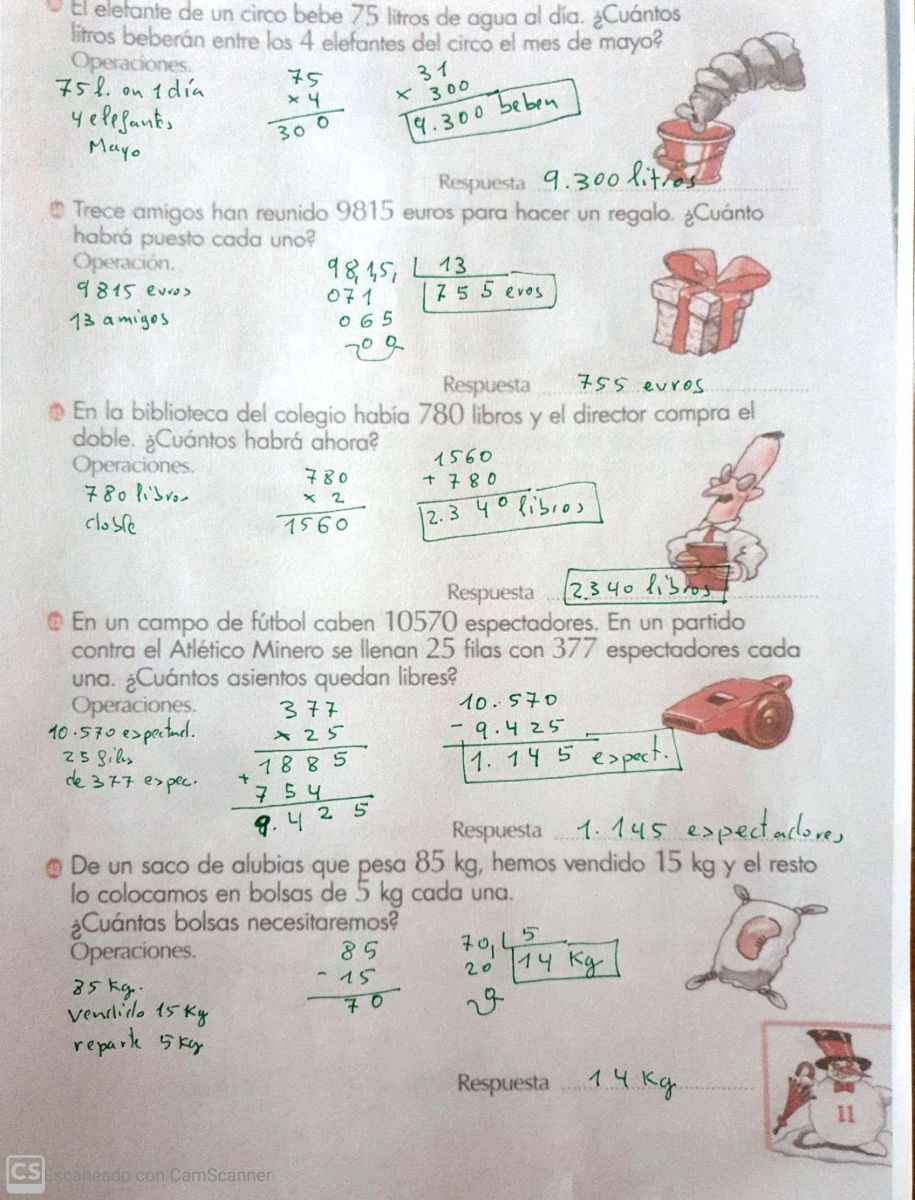 El elefante de un circo bebe 75 litros de agua al día. ¿Cuántos
litros beberán entre los 4 elefantes del circo el mes de mayo?
Operaciones.
75 l. en 1 día
4 elefantes
Mayo
75
x 4
300
31
x 300
9.300 beben
Respuesta 9.300 litros
Trece amigos han reunido 9815 euros para hacer un regalo. ¿Cuánto
habrá puesto cada uno?
Operación.
9815 euros
13 amigos
9815 13
071 755 evos
065
00
Respuesta 755 euros
En la biblioteca del colegio había 780 libros y el director compra el
doble. ¿Cuántos habrá ahora?
Operaciones.
780 libros
doble
780
x 2
1560
1560
+ 780
2.340 libros
Respuesta 2.340 libros
En un campo de fútbol caben 10570 espectadores. En un partido
contra el Atlético Minero se llenan 25 filas con 377 espectadores cada
una. ¿Cuántos asientos quedan libres?
Operaciones.
10.570 espectad.
25 filas
de 377 espec.
377
x 25
1885
+ 754
9.425
10.570
- 9.425
1.145 espect.
Respuesta 1.145 espectadores
De un saco de alubias que pesa 85 kg, hemos vendido 15 kg y el resto
lo colocamos en bolsas de 5 kg cada una.
¿Cuántas bolsas necesitaremos?
Operaciones.
85 kg.
vendido 15 kg
reparte 5 kg
85
- 15
70
70 5
20 14 Kg
0
Respuesta 14 Kg
11
CS Escaneado con CamScanner